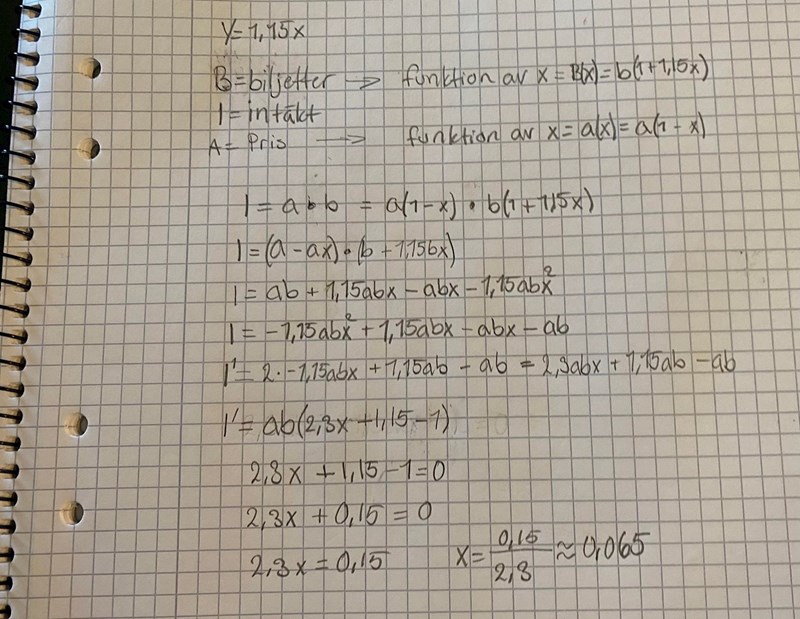 Y=1,15x
B=biljetter → funktion av x = B(x) = b(1+1,15x)
I = intäkt
A= Pris → funktion av x = a(x) = a(1-x)
I = a•b = a(1-x) • b(1+1,15x)
I = (a-ax)•(b+1,15bx)
I = ab + 1,15abx - abx - 1,15abx²
I = -1,15abx² + 1,15abx - abx - ab
I' = 2·-1,15abx + 1,15ab - ab = 2,3abx + 1,15ab - ab
I' = ab(2,3x+1,15-1)
2,3x + 1,15-1=0
2,3x + 0,15 = 0
2,3x = 0,15 x = 0,15/2,3 ≈ 0,065